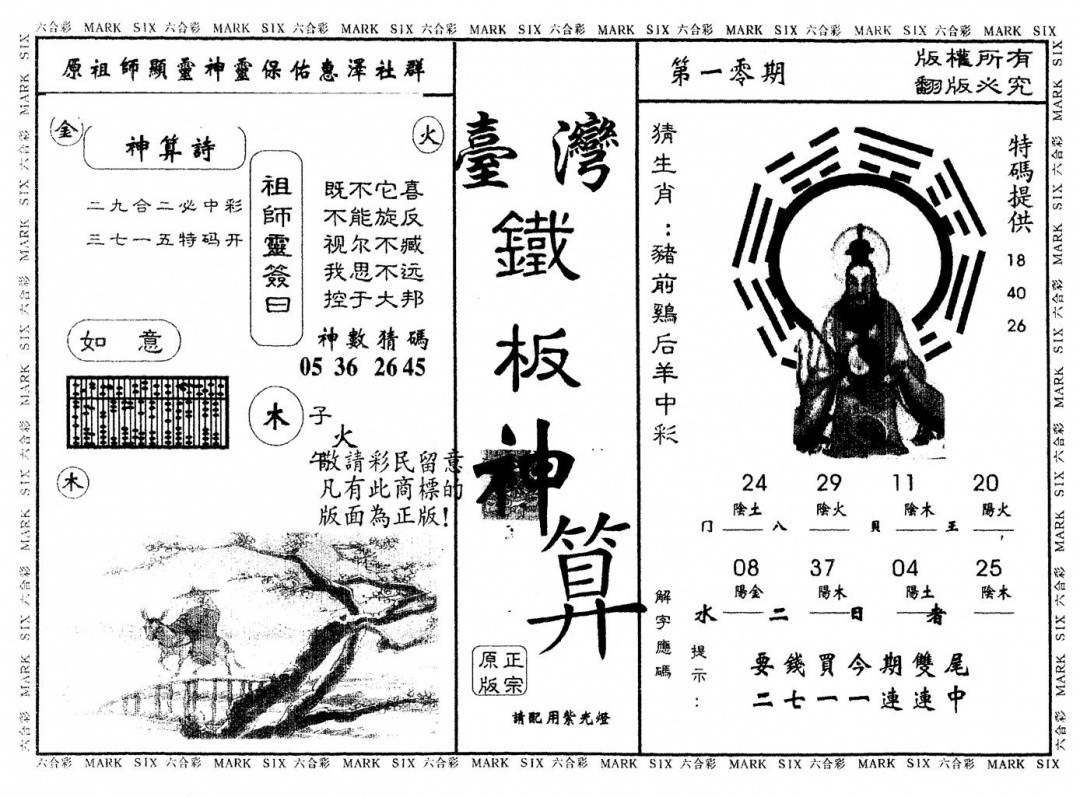 六合彩 MARK SIX 六合彩 MARK SIX 六合彩 MARK SIX 六合彩 MARK SIX 六合彩 MARK SIX 六合彩 MARK SIX 六合彩 MARK SIX 六合彩 MARK SIX
原祖師顯靈神靈保佑惠澤社群
金
神算詩
火
二九合二必中彩
三七一五特码开
祖師靈簽曰
既不它喜
不能旋反
视尔不臧
我思不远
控于大邦
神數猜碼
05 36 26 45
如意
木
子
火
午
敬請彩民留意
凡有此商標的
版面為正版!
木
臺灣
鐵
板
神
算
正宗
原版
請配用紫光燈
第一零期
版權所有
翻版必究
猜生肖:豬前鷄后羊中彩
特碼提供
18
40
26
24 29 11 20
陰土 陰火 陰木 陽火
门 八 貝 王
08 37 04 25
陽金 陽木 陽土 陰木
水 二 日 者
解字應碼
提示:
要錢買今期雙尾
二七一一連連中
六合彩 MARK SIX 六合彩 MARK SIX 六合彩 MARK SIX 六合彩 MARK SIX 六合彩 MARK SIX 六合彩 MARK SIX 六合彩 MARK SIX 六合彩 MARK SIX